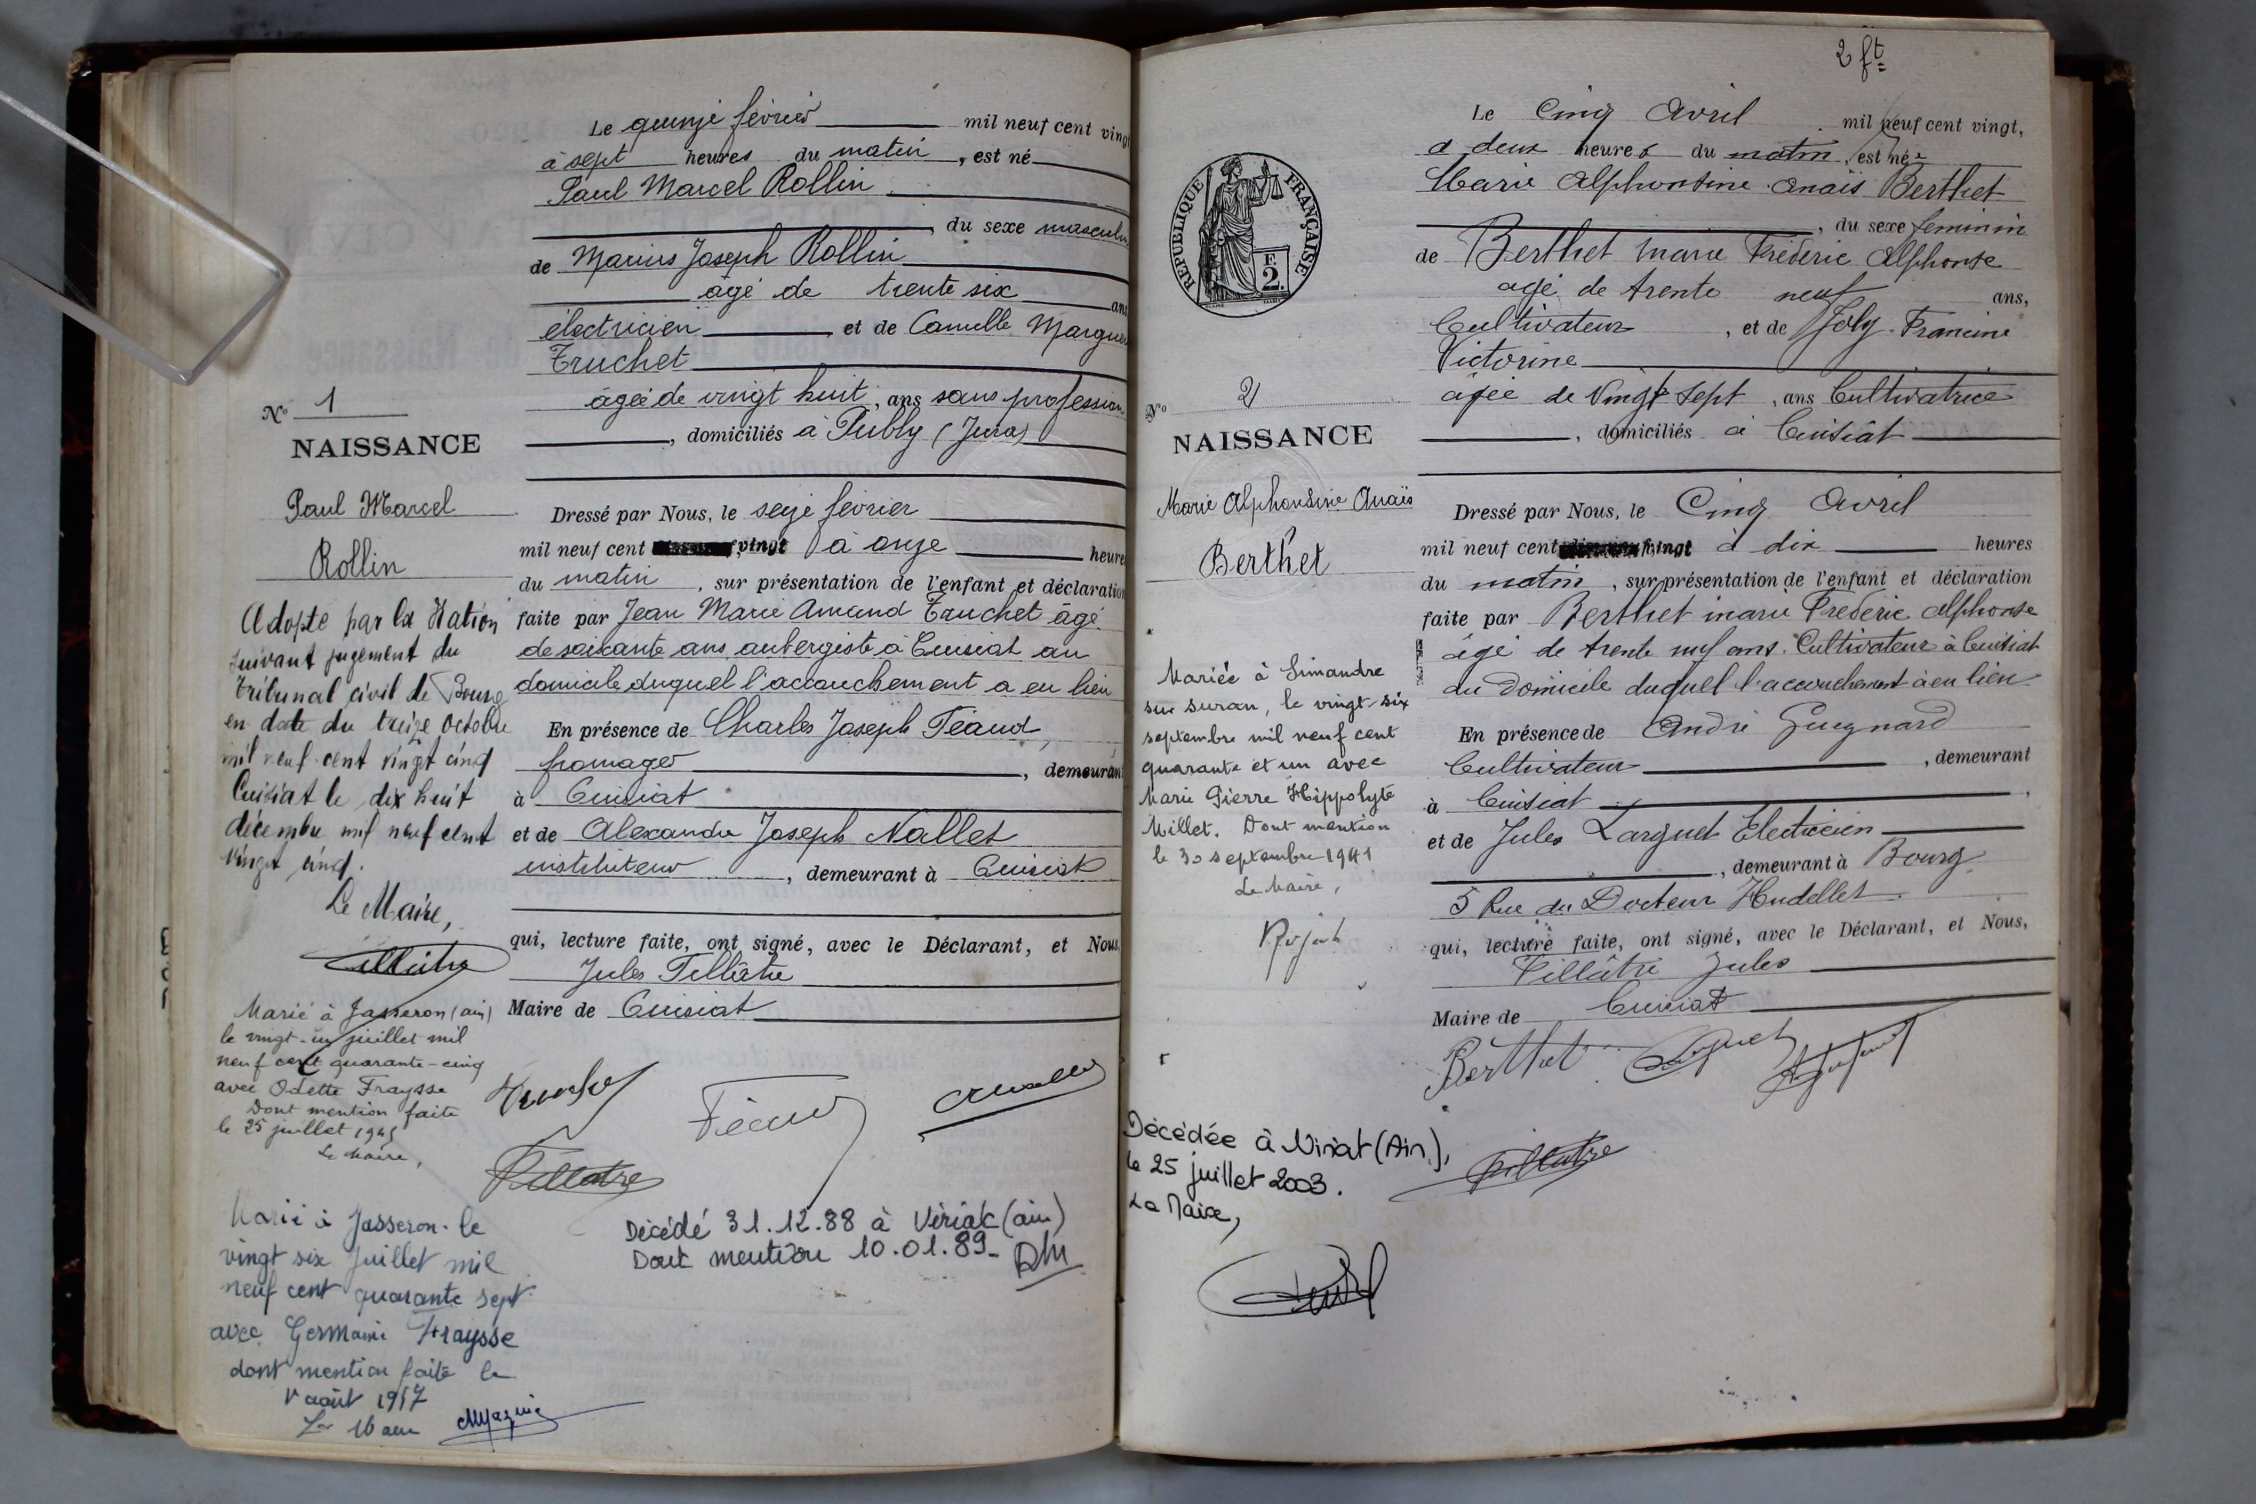 Le quinze février mil neuf cent vingt
à sept heures du matin, est né
Paul Marcel Rollin
, du sexe masculin
de Marius Joseph Rollin
âgé de trente six ans
électricien et de Camille Margue
Truchet
âgée de vingt huit, ans sans profession
, domiciliés à Publy (Jura)
Dressé par Nous, le seize février
mil neuf cent vingt à onze heure
du matin, sur présentation de l'enfant et déclaration
faite par Jean Marie Amand Truchet âgé
de soixante ans, aubergiste à Cuisiat au
domicile duquel l'accouchement a eu lieu
En présence de Charles Joseph Féaud,
fromager, demeurant
à Cuisiat
et de Alexandre Joseph Nallet
instituteur, demeurant à Cuisiat
qui, lecture faite, ont signé, avec le Déclarant, et Nous,
Jules Tillâtre
Maire de Cuisiat
Féaud
Tillâtre
Décédé 31.12.88 à Viriat (ain)
Dont mention 10.01.89-
N° 1
NAISSANCE
Paul Marcel
Rollin
Adopté par la Nation
suivant jugement du
tribunal civil de Bourg
en date du treize octobre
mil neuf cent vingt cinq
Cuisiat le dix huit
décembre mil neuf cent
vingt cinq.
Le Maire,
Tillâtre
Marié à Jasseron (ain)
le vingt-un juillet mil
neuf cent quarante-cinq
avec Odette Fraysse
Dont mention faite
le 25 juillet 1945
Le Maire,
Marié à Jasseron le
vingt six juillet mil
neuf cent quarante sept
avec Germaine Fraysse
dont mention faite le
1r août 1947
Le Maire
2 ft
Le Cinq Avril mil neuf cent vingt,
a deux heures du matin, est née
Marie Alphonsine Anaïs Berthet
, du sexe féminin
de Berthet marie Frédéric Alphonse
agé de trente neuf ans,
Cultivateur, et de Joly Francine
Victorine
agée de Vingt sept, ans Cultivatrice
, domiciliés à Cuisiat
Dressé par Nous, le Cinq Avril
mil neuf cent vingt à dix heures
du matin, sur présentation de l'enfant et déclaration
faite par Berthet marie Frédéric Alphonse
âgé de trente neuf ans. Cultivateur à Cuisiat
au Domicile duquel l'accouchement à eu lieu
En présence de André Guignard
Cultivateur, demeurant
à Cuisiat,
et de Jules Larguet Electricien
, demeurant à Bourg
5 Rue du Docteur Hudellet.
qui, lecture faite, ont signé, avec le Déclarant, et Nous,
Tillâtre Jules
Maire de Cuisiat
Berthet
Tillâtre
REPUBLIQUE FRANÇAISE
F.
2.
N° 2
NAISSANCE
Marie Alphonsine Anaïs
Berthet
Mariée à Simandre
sur suran, le vingt-six
septembre mil neuf cent
quarante et un avec
Marie Pierre Hippolyte
Millet. Dont mention
le 30 septembre 1941
Le Maire,
Décédée à Viriat (Ain),
le 25 juillet 2003.
La Maire,